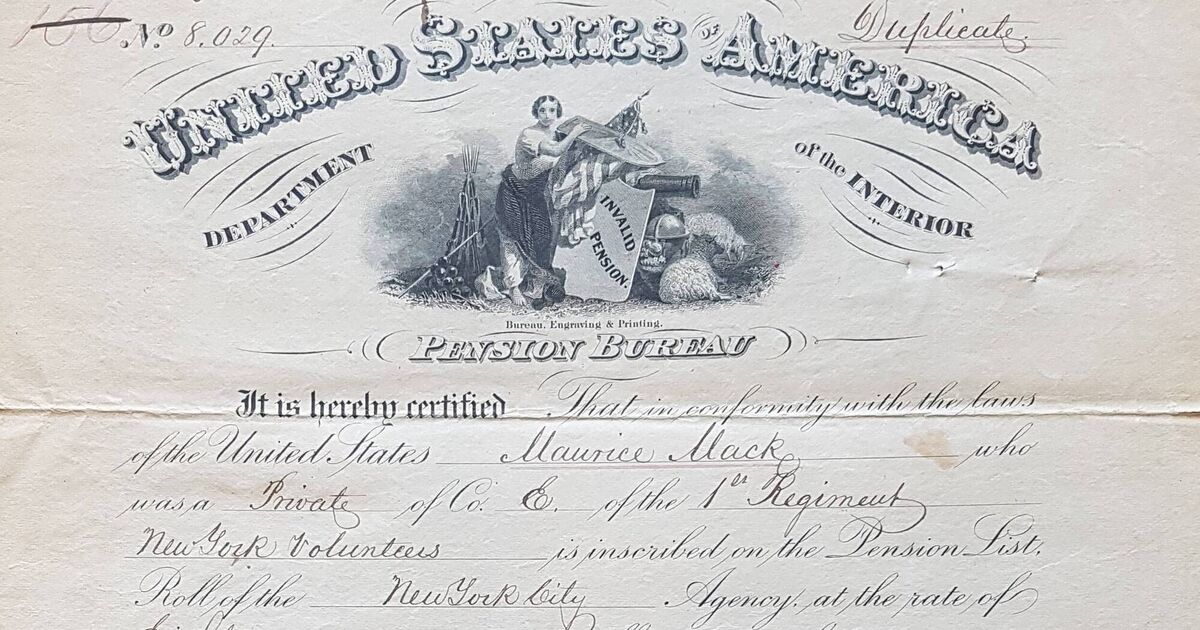 No 8,029. Duplicate.
UNITED STATES OF AMERICA
DEPARTMENT of the INTERIOR
INVALID
PENSION.
Bureau, Engraving & Printing.
PENSION BUREAU
It is hereby certified That in conformity with the laws
of the United States Maurice Mack who
was a Private of Co. E. of the 1st Regiment
New York Volunteers is inscribed on the Pension List,
Roll of the New York City Agency, at the rate of